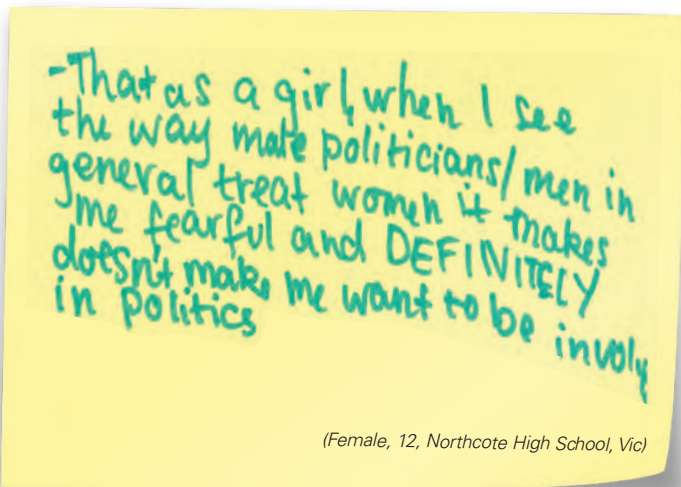 -That as a girl, when I see
the way male politicians/men in
general treat women it makes
me fearful and DEFINITELY
doesn't make me want to be involv
in politics
(Female, 12, Northcote High School, Vic)